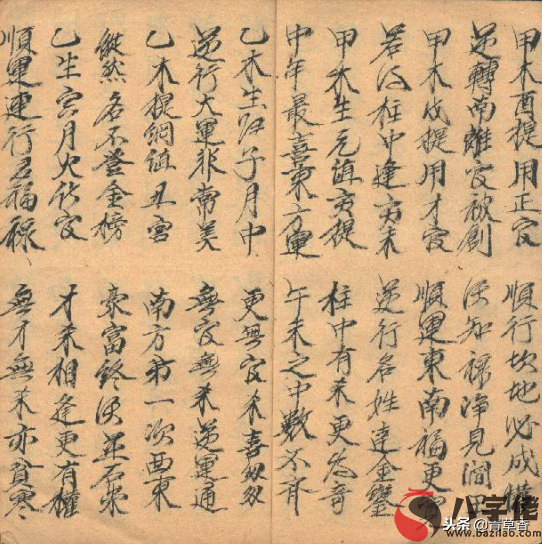 甲木酉提用正官
順行坎地必成
逆轉南離官被創
須知祿淨見閻
甲木戌提用才官
順運東南福更
若得柱中逢亥未
逆行名姓達金鑾
甲木生元值亥提
柱中有未更為奇
中年最喜東方運
午未之中數不齊
乙木生於子月中
更無官未喜
逆行大運非常美
無官無未逆運通
乙木提綱值丑宮
南方第一次西東
縱然名不登金榜
豪富終須並石崇
乙生寅月火作官
才未相逢更有權
順運運行名福祿
無才無未亦貧寒
八字佬
头条 @青草香
www.bazilao.com